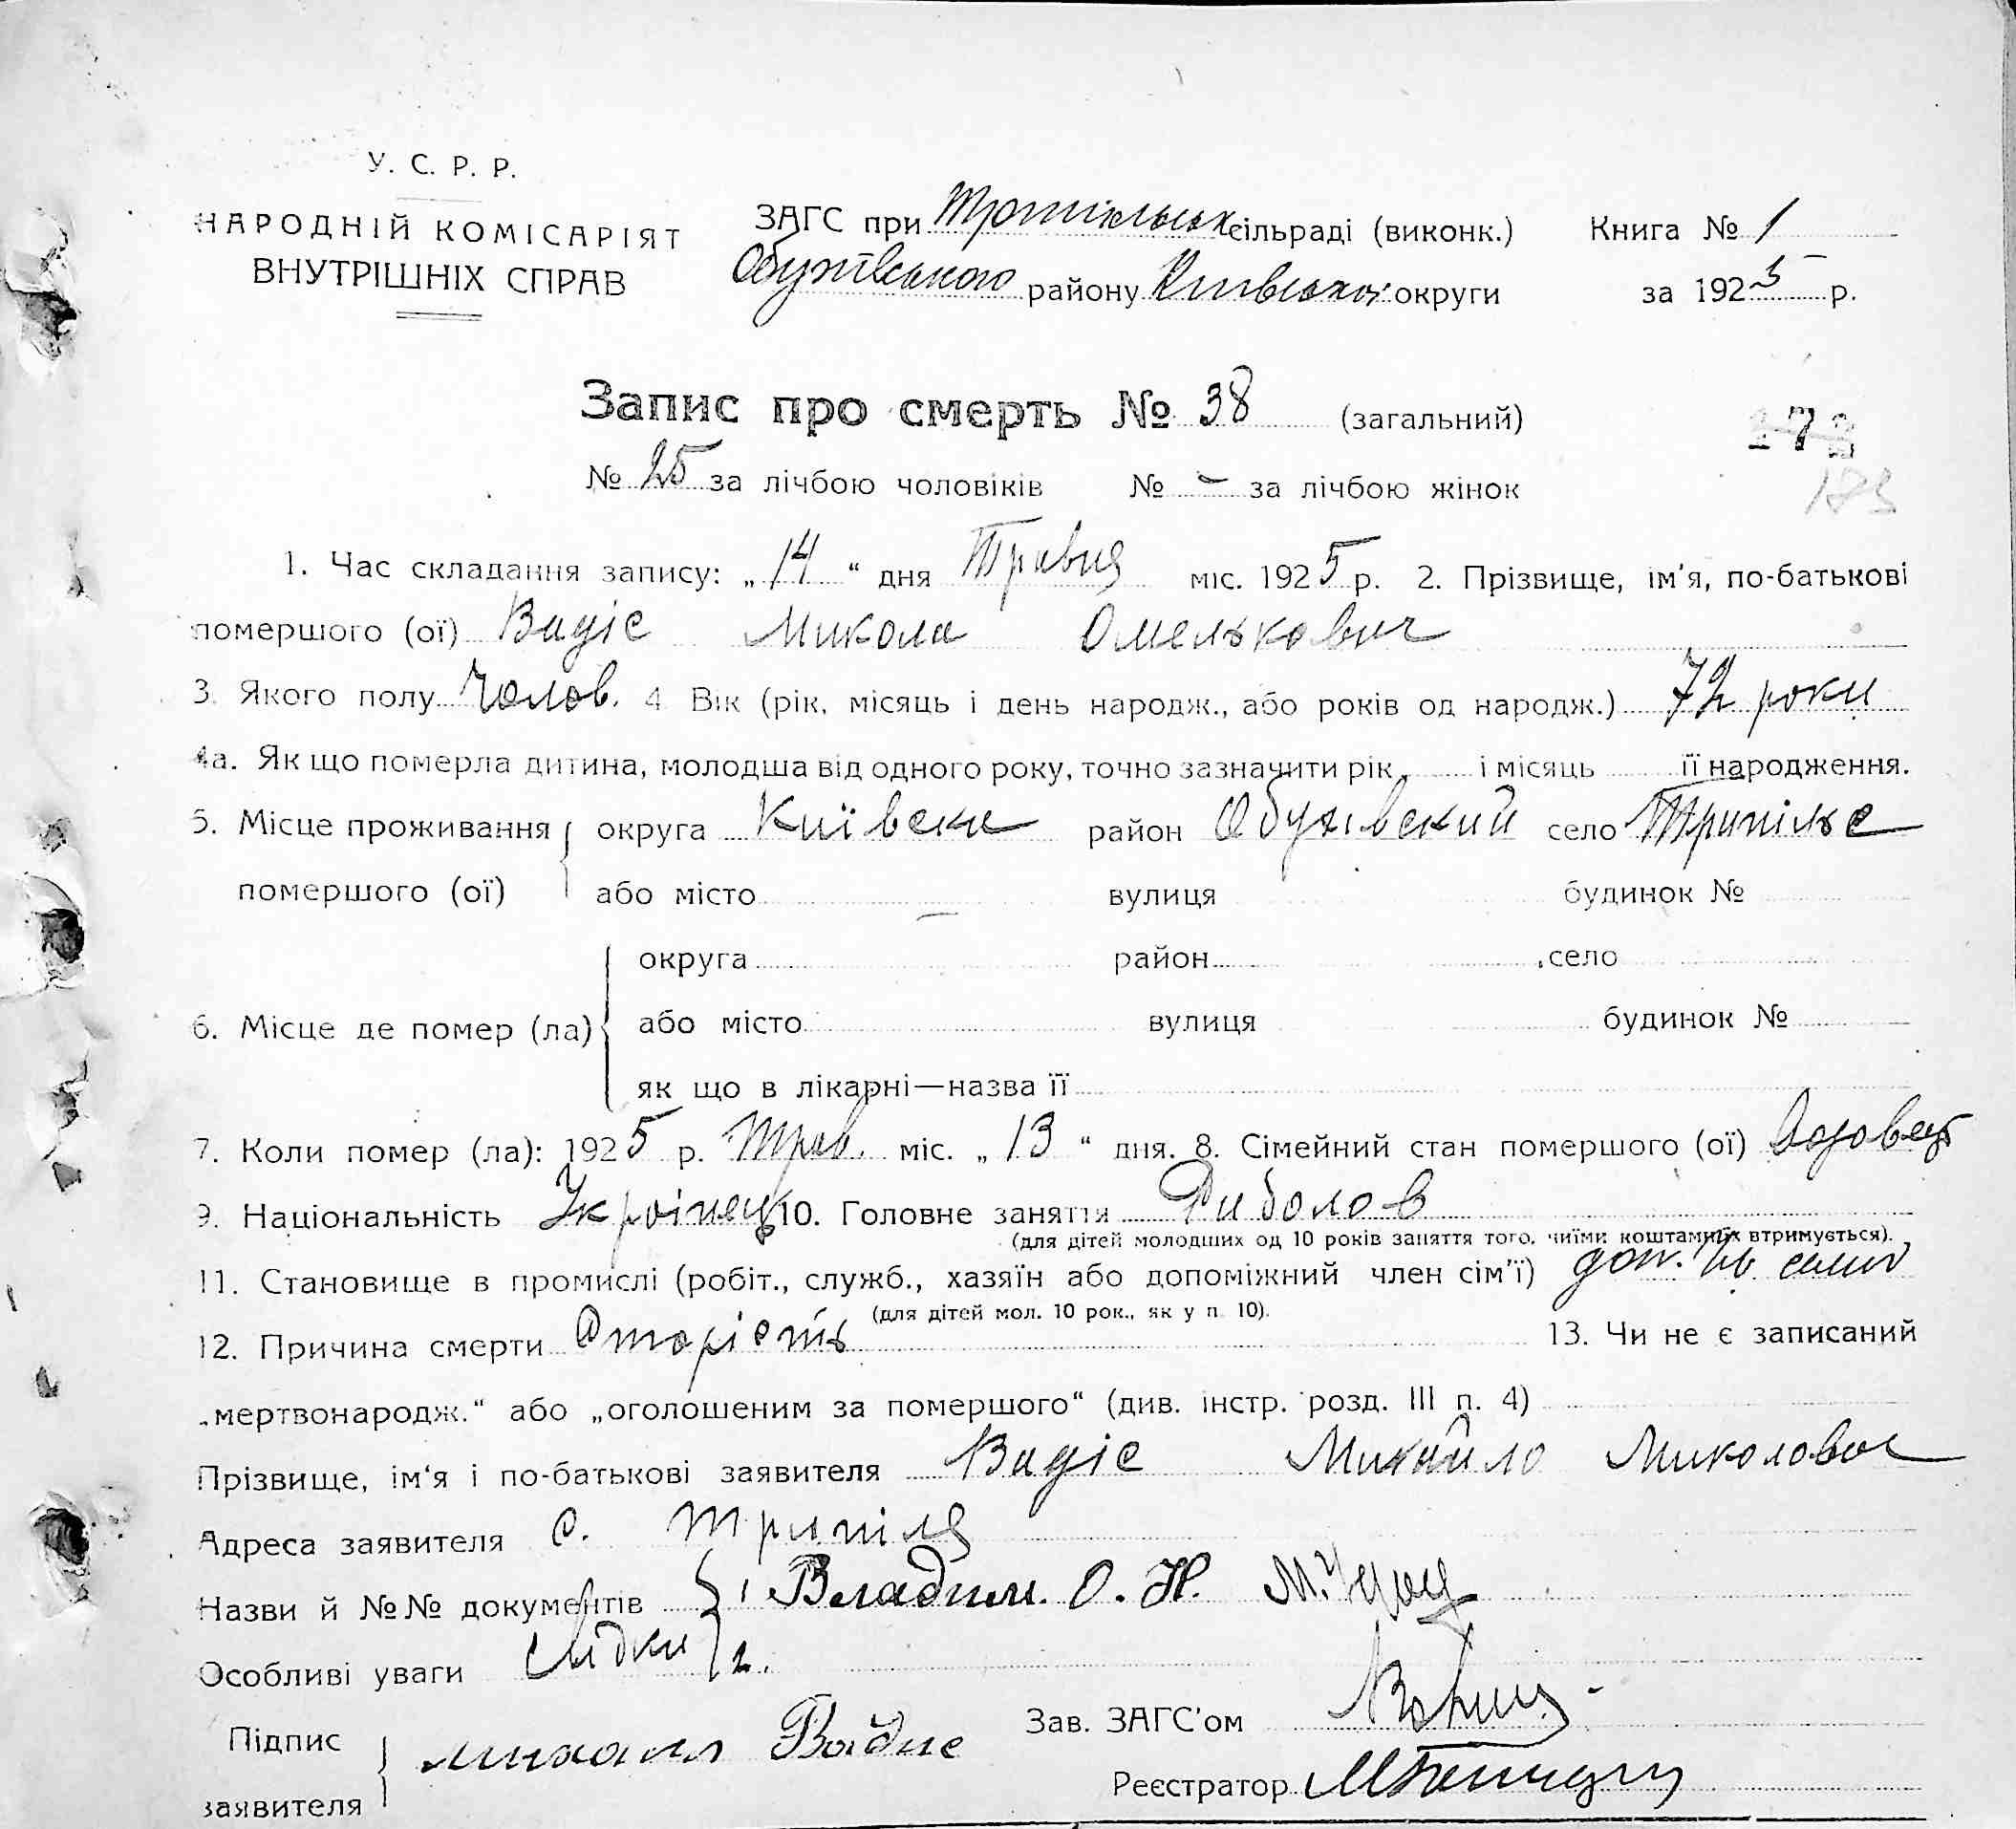 У. С. Р. Р.
НАРОДНІЙ КОМІСАРІЯТ
ВНУТРІШНІХ СПРАВ
ЗАГС при Трипільськ сільраді (виконк.) Книга № 1
Обухівського району Київської округи за 1925 р.
Запис про смерть № 38 (загальний)
173
№ 25 за лічбою чоловіків № – за лічбою жінок
183
1. Час складання запису: „14“ дня Травня міс. 1925 р. 2. Прізвище, ім'я, по-батькові
помершого (ої) Вадіс Микола Омелькович
3. Якого полу Чолов. 4 Вік (рік, місяць і день народж., або років од народж.) 72 роки
4а. Як що померла дитина, молодша від одного року, точно зазначити рік і місяць її народження.
5. Місце проживання округа Київська район Обухівский село Трипільє
помершого (ої) або місто — вулиця будинок №
округа район село
6. Місце де помер (ла) або місто вулиця будинок №
як що в лікарні—назва її
7. Коли помер (ла): 1925 р. Трав. міс. „13“ дня. 8. Сімейний стан помершого (ої) Вдовець
9. Національність Українець 10. Головне заняття Риболов
(для дітей молодших од 10 років заняття того, чиїми коштами їх втримується).
11. Становище в промислі (робіт., служб., хазяїн або допоміжний член сім'ї) доп. чл. семи
(для дітей мол. 10 рок., як у п. 10).
12. Причина смерти Старість 13. Чи не є записаний
„мертвонародж.“ або „оголошеним за помершого“ (див. інстр. розд. III п. 4)
Прізвище, ім'я і по-батькові заявителя Вадіс Михайло Миколович
Адреса заявителя С. Трипілля
Назви й №№ документів 1 Владим. О. Н.
Особливі уваги свідки 2.
Підпис заявителя михаил Вадис Зав. ЗАГС'ом
Реєстратор